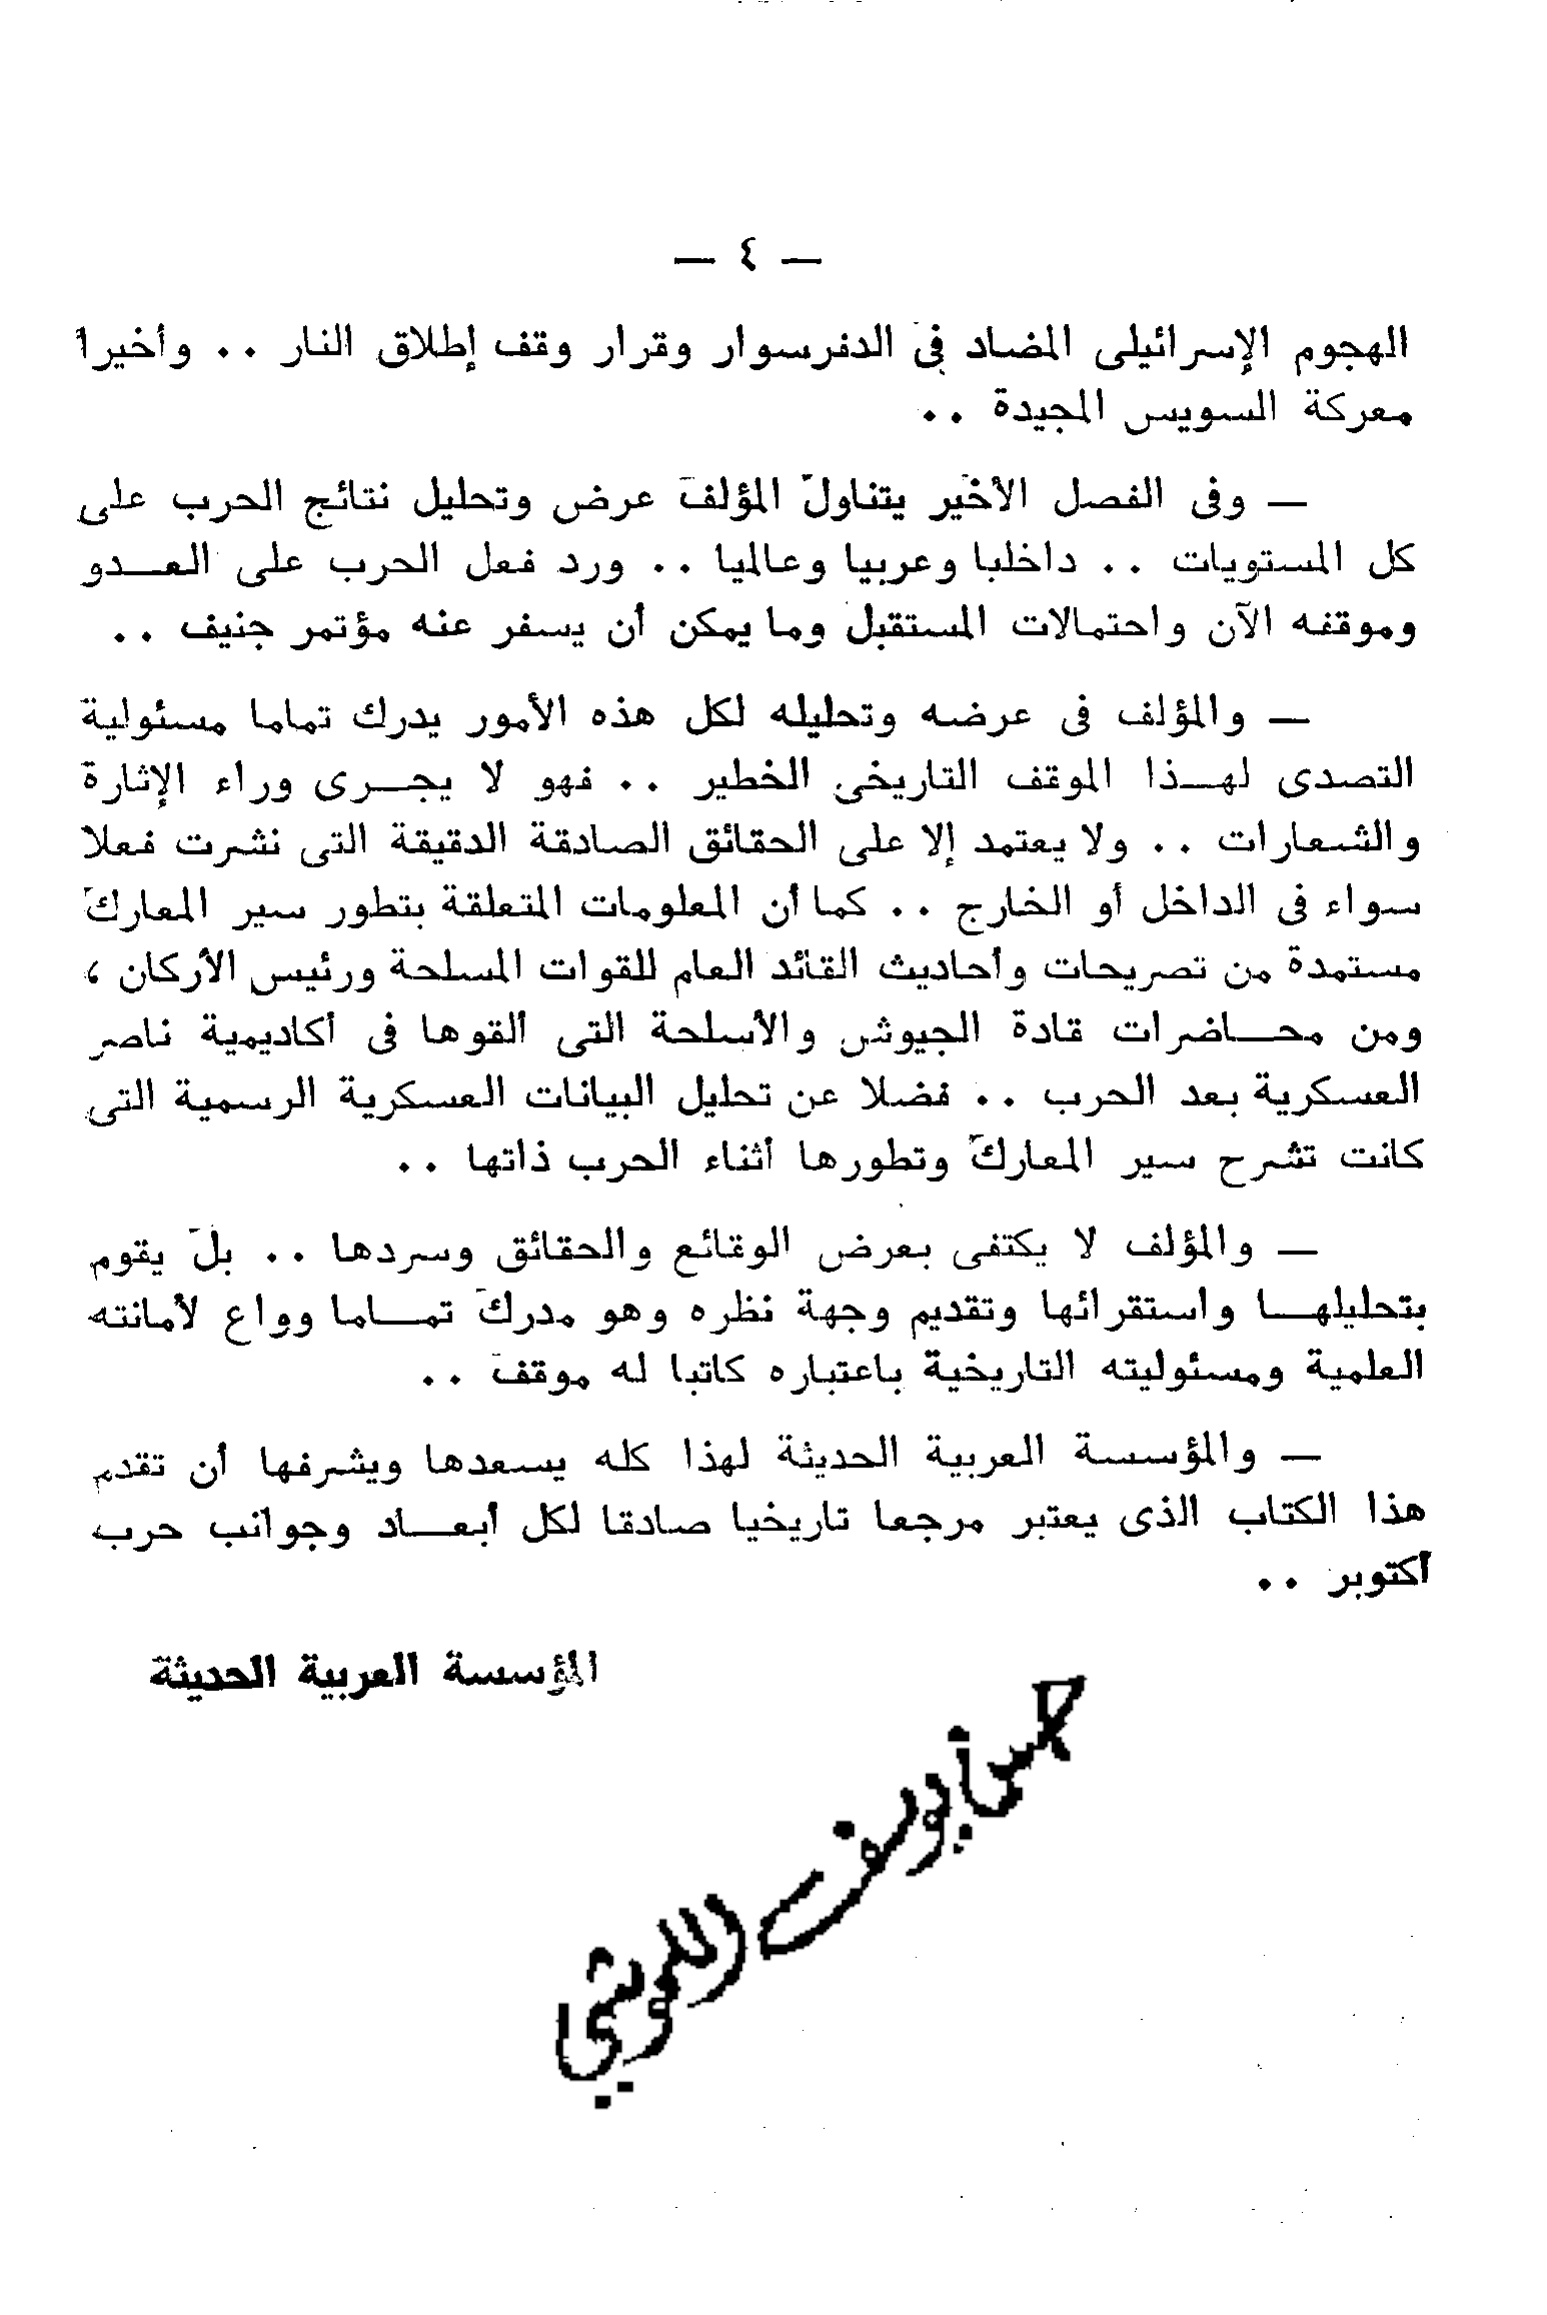 — ٤ —
الهجوم الإسرائيلى المضاد فى الدفرسوار وقرار وقف إطلاق النار .. وأخيرا
معركة السويس المجيدة ..
— وفى الفصل الأخير يتناول المؤلف عرض وتحليل نتائج الحرب على
كل المستويات .. داخليا وعربيا وعالميا .. ورد فعل الحرب على العـدو
وموقفه الآن واحتمالات المستقبل وما يمكن أن يسفر عنه مؤتمر جنيف ..
— والمؤلف فى عرضه وتحليله لكل هذه الأمور يدرك تماما مسئولية
التصدى لهـذا الموقف التاريخى الخطير .. فهو لا يجـرى وراء الإثارة
والشعارات .. ولا يعتمد إلا على الحقائق الصادقة الدقيقة التى نشرت فعلا
سواء فى الداخل أو الخارج .. كما أن المعلومات المتعلقة بتطور سير المعارك
مستمدة من تصريحات وأحاديث القائد العام للقوات المسلحة ورئيس الأركان ،
ومن محـاضرات قادة الجيوش والأسلحة التى ألقوها فى أكاديمية ناصر
العسكرية بعد الحرب .. فضلا عن تحليل البيانات العسكرية الرسمية التى
كانت تشرح سير المعارك وتطورها أثناء الحرب ذاتها ..
— والمؤلف لا يكتفى بعرض الوقائع والحقائق وسردها .. بل يقوم
بتحليلهـا واستقرائها وتقديم وجهة نظره وهو مدرك تمـاما وواع لأمانته
العلمية ومسئوليته التاريخية باعتباره كاتبا له موقف ..
— والمؤسسة العربية الحديثة لهذا كله يسعدها ويشرفها أن تقدم
هذا الكتاب الذى يعتبر مرجعا تاريخيا صادقا لكل أبعـاد وجوانب حرب
أكتوبر ..
المؤسسة العربية الحديثة
أبويوسف